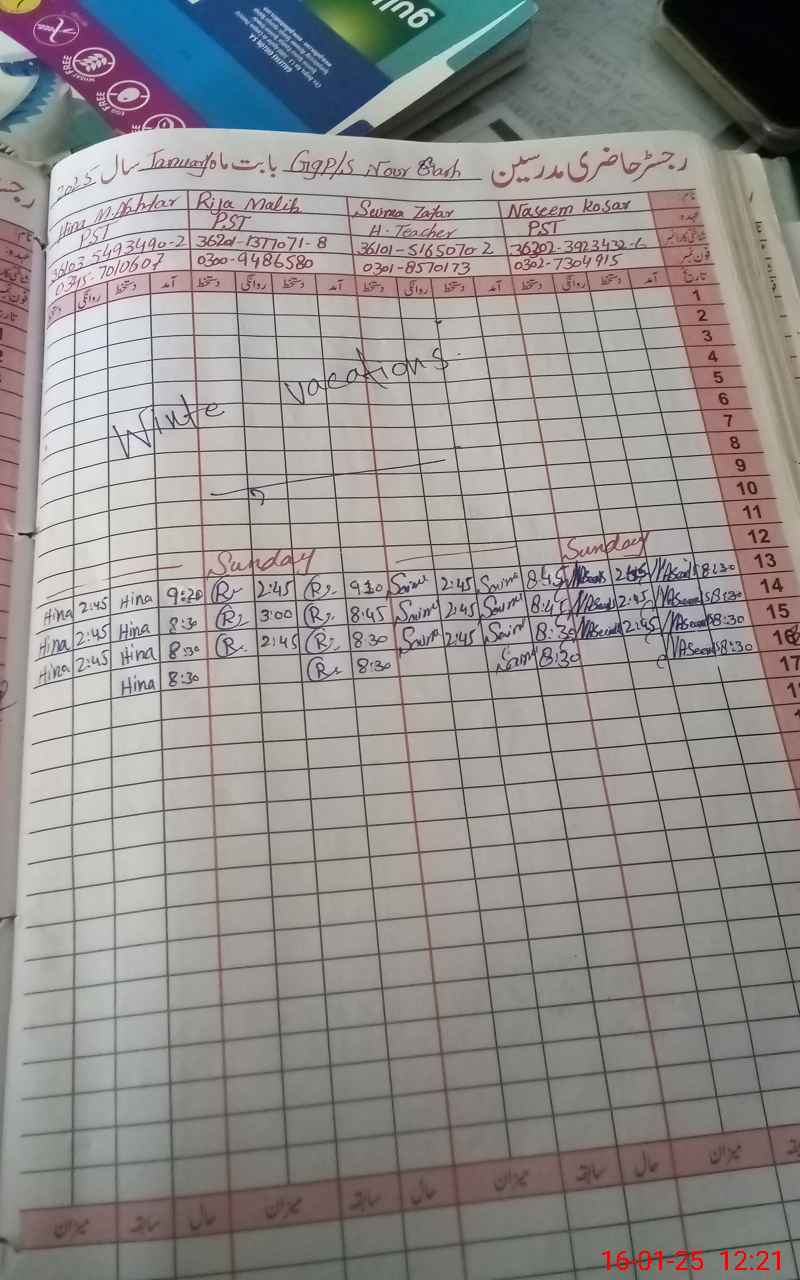 رجسٹر حاضری مدرسین GgP/s Noor Garh بابت ماہ January سال 2025
نام Naseem Kosar Saima Zafar Rija Malik Hina M.Akhtar
عہدہ PST H.Teacher PST PST
36202-3923432-6 36101-5165070-2 36201-1377071-8 36103-5493490-2
فون نمبر 0302-7304915 0301-8570173 0300-9486580 0315-7010607
تاریخ آمد دستخط روانگی دستخط آمد دستخط روانگی دستخط آمد دستخط روانگی دستخط آمد دستخط روانگی
1
2
3
4
5
6
7
8
9
10
11
12
13
14
15
16
17
Winte vacations
Sunday Sunday
Hina 2:45 Hina 9:20 R 2:45 R 9:20 Saima 2:45 Saima 8:45 Naseem 2:45 Naseem 8:30
Hina 2:45 Hina 8:30 R 3:00 R 8:45 Saima 2:45 Saima 8:45 Naseem 2:45 Naseem 8:30
Hina 2:45 Hina 8:30 R 2:45 R 8:30 Saima 2:45 Saima 8:30 Naseem 2:45 Naseem 8:30
Hina 8:30 R 8:30 Saima 8:30 Naseem 8:30
میزان حال سابقہ میزان حال سابقہ میزان حال سابقہ میزان
16-01-25 12:21